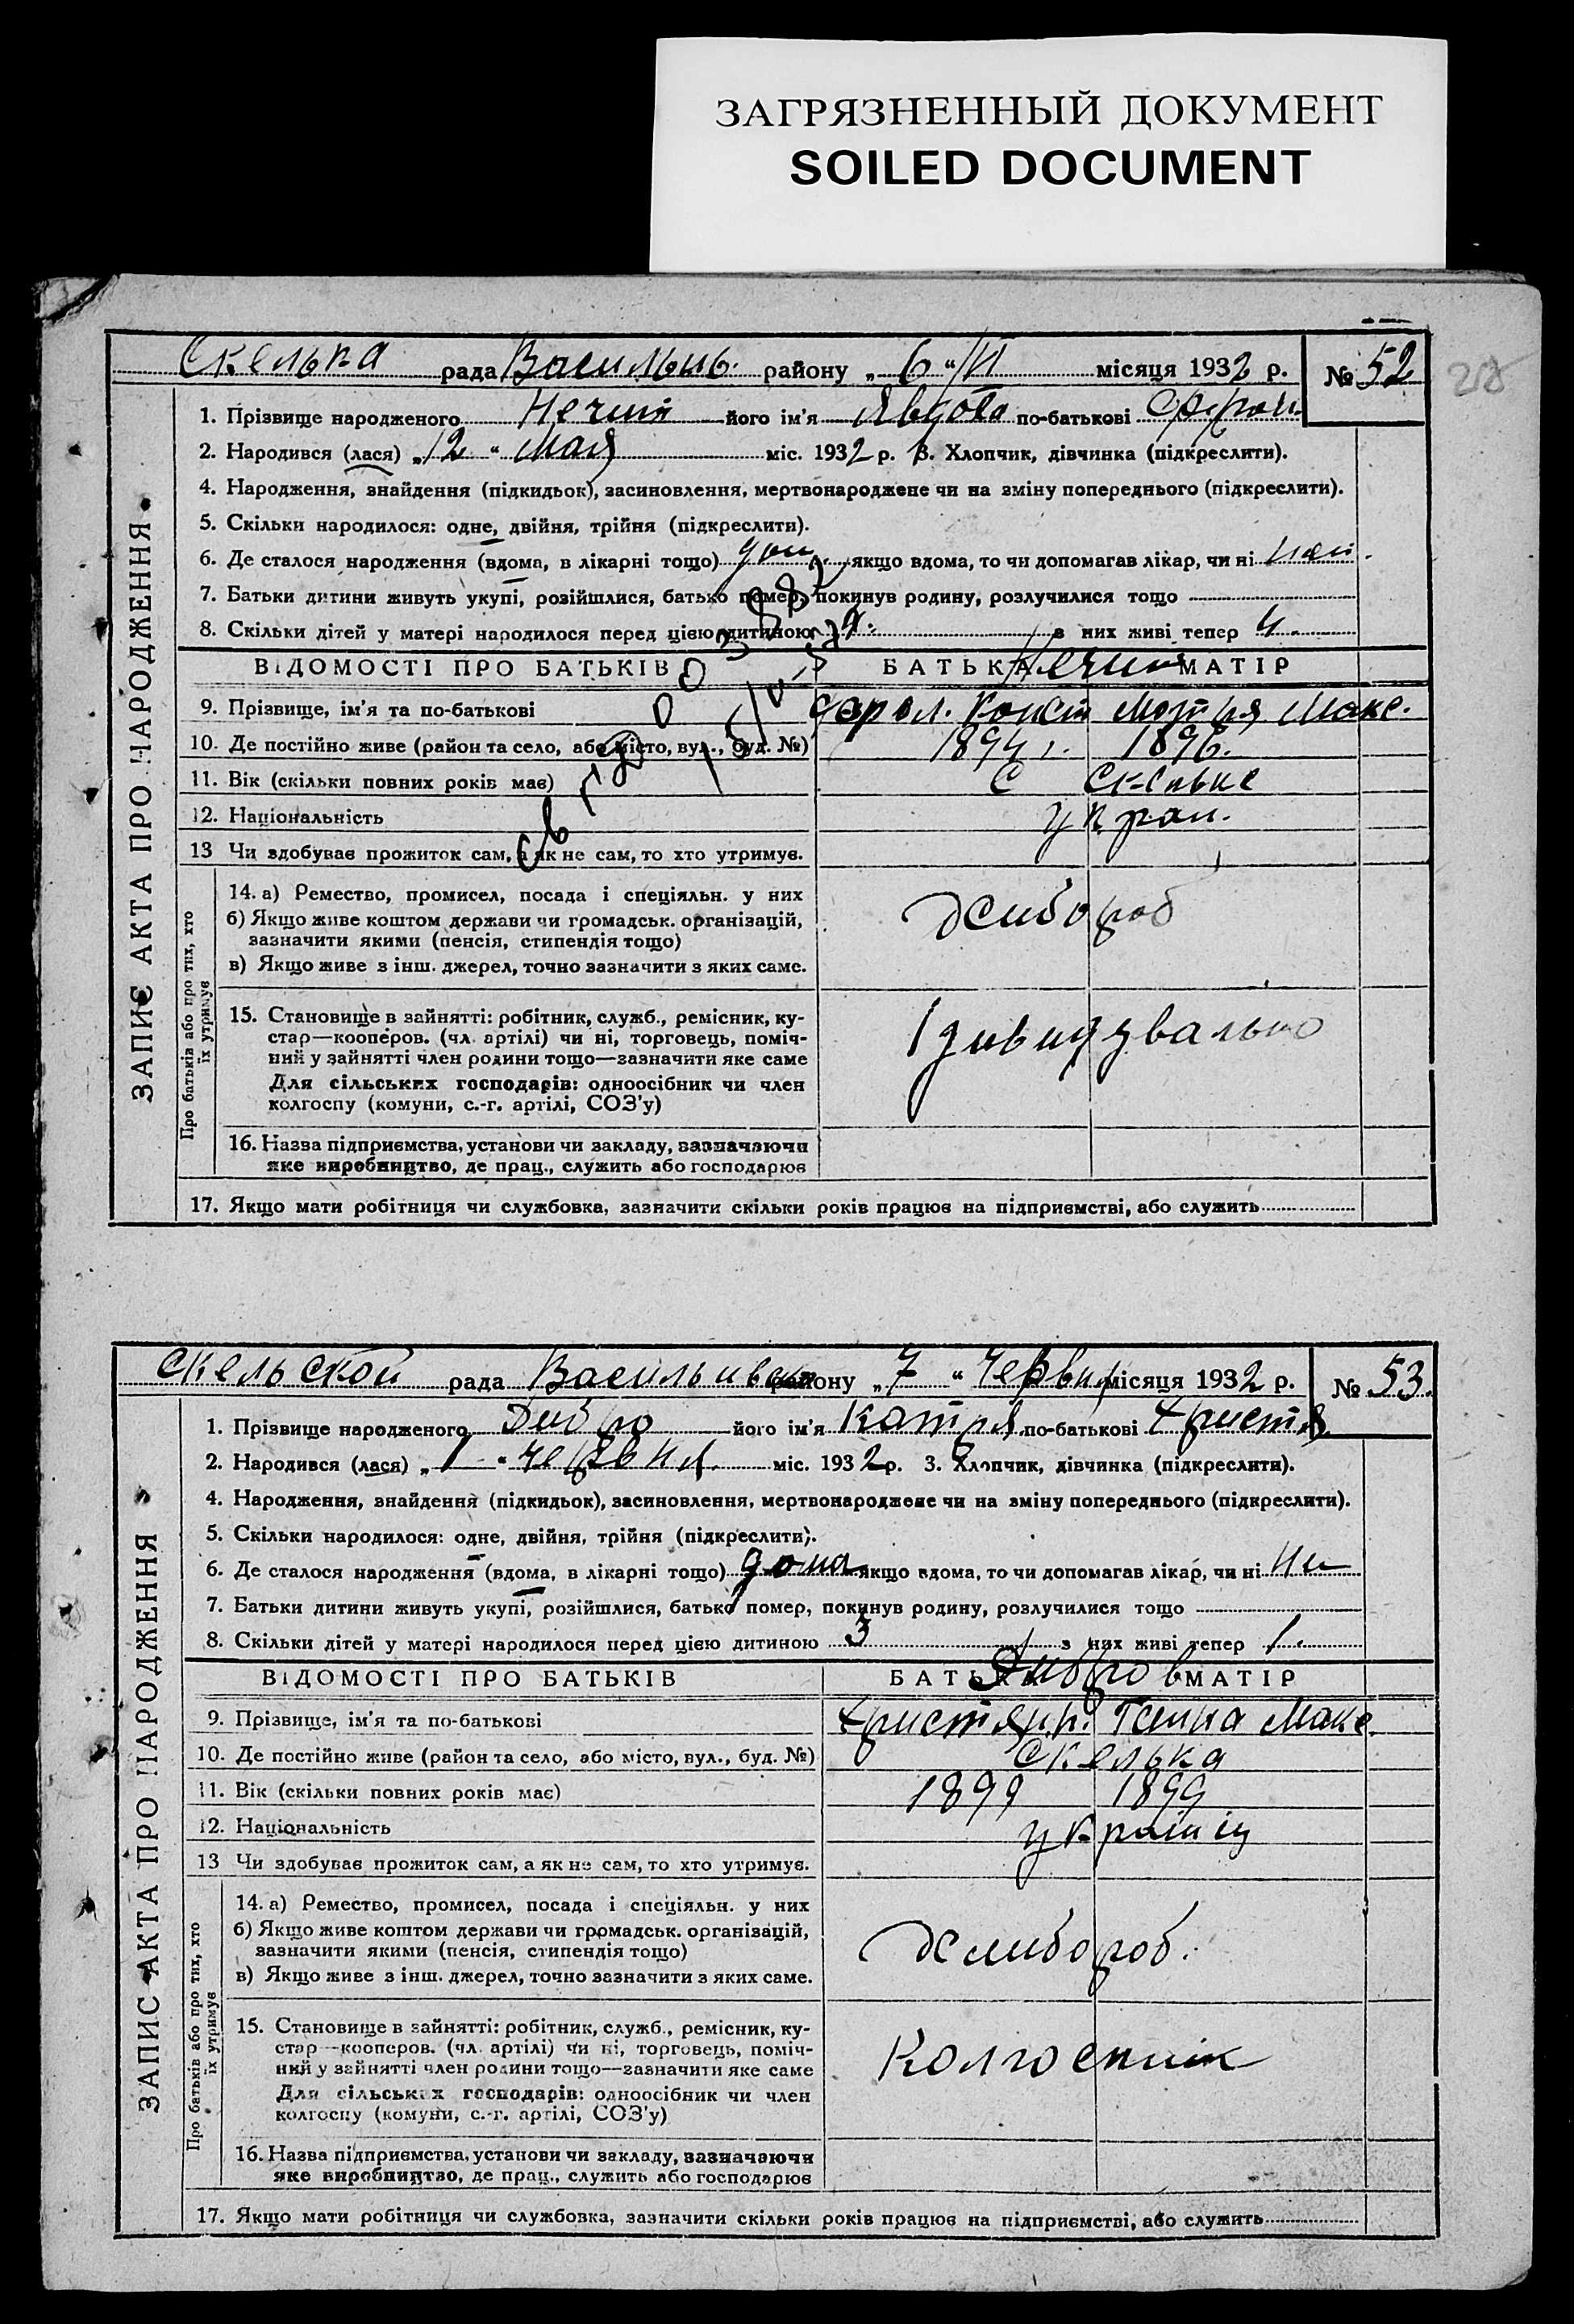 ЗАГРЯЗНЕННЫЙ ДОКУМЕНТ
SOILED DOCUMENT
Скелька рада Васильив. району „ 6 “ /VI місяця 1932 р. № 52
1. Прізвище народженого його ім'я Явдоха по-батькові
2. Народився (лася) „ 12 “ Мая міс. 1932 р. 3. Хлопчик, дівчинка (підкреслити).
4. Народження, знайдення (підкидьок), засиновлення, мертвонароджене чи на зміну попереднього (підкреслити).
5. Скільки народилося: одне, двійня, трійня (підкреслити).
6. Де сталося народження (вдома, в лікарні тощо) якщо вдома, то чи допомагав лікар, чи ні
7. Батьки дитини живуть укупі, розійшлися, батько помер, покинув родину, розлучилися тощо
8. Скільки дітей у матері народилося перед цією дитиною з них живі тепер 4.
ВІДОМОСТІ ПРО БАТЬКІВ БАТЬКА МАТІР
9. Прізвище, ім'я та по-батькові Конст Мотря Макс.
10. Де постійно живе (район та село, або місто, вул., буд. №) 1894 г. 1896.
11. Вік (скільки повних років має) С Скельке
12. Національність украи.
13 Чи здобував прожиток сам, а як не сам, то хто утримує.
14. а) Ремество, промисел, посада і спеціяльн. у них
б) Якщо живе коштом держави чи громадськ. організацій,
зазначити якими (пенсія, стипендія тощо)
в) Якщо живе з інш. джерел, точно зазначити з яких саме.
хлибороб
15. Становище в зайнятті: робітник, служб., ремісник, ку-
стар—кооперов. (чл. артілі) чи ні, торговець, поміч-
ний у зайнятті член родини тощо—зазначити яке саме
Для сільських господарів: одноосібник чи член
колгоспу (комуни, с.-г. артілі, СОЗ'у)
Індивидувально
16. Назва підприємства, установи чи закладу, зазначаючи
яке виробництво, де прац., служить або господарює
17. Якщо мати робітниця чи службовка, зазначити скільки років працює на підприємстві, або служить
ЗАПИС АКТА ПРО НАРОДЖЕННЯ
Про батьків або про тих, хто
їх утримує
Скельской рада Васильивськ району „ 7 “ Червня місяця 1932 р. № 53.
1. Прізвище народженого його ім'я Катря по-батькові
2. Народився (лася) „ 1 “ червня міс. 1932 р. 3. Хлопчик, дівчинка (підкреслити).
4. Народження, знайдення (підкидьок), засиновлення, мертвонароджене чи на зміну попереднього (підкреслити).
5. Скільки народилося: одне, двійня, трійня (підкреслити).
6. Де сталося народження (вдома, в лікарні тощо) дома якщо вдома, то чи допомагав лікар, чи ні ни
7. Батьки дитини живуть укупі, розійшлися, батько помер, покинув родину, розлучилися тощо
8. Скільки дітей у матері народилося перед цією дитиною 3 з них живі тепер 1.
ВІДОМОСТІ ПРО БАТЬКІВ БАТЬКА МАТІР
9. Прізвище, ім'я та по-батькові Ганна Макс
10. Де постійно живе (район та село, або місто, вул., буд. №) Скелька
11. Вік (скільки повних років має) 1899 1899
12. Національність українц
13 Чи здобував прожиток сам, а як не сам, то хто утримує.
14. а) Ремество, промисел, посада і спеціяльн. у них
б) Якщо живе коштом держави чи громадськ. організацій,
зазначити якими (пенсія, стипендія тощо)
в) Якщо живе з інш. джерел, точно зазначити з яких саме.
хлибороб.
15. Становище в зайнятті: робітник, служб., ремісник, ку-
стар—кооперов. (чл. артілі) чи ні, торговець, поміч-
ний у зайнятті член родини тощо—зазначити яке саме
Для сільських господарів: одноосібник чи член
колгоспу (комуни, с.-г. артілі, СОЗ'у)
Колгоспник
16. Назва підприємства, установи чи закладу, зазначаючи
яке виробництво, де прац., служить або господарює
17. Якщо мати робітниця чи службовка, зазначити скільки років працює на підприємстві, або служить
ЗАПИС АКТА ПРО НАРОДЖЕННЯ
Про батьків або про тих, хто
їх утримує